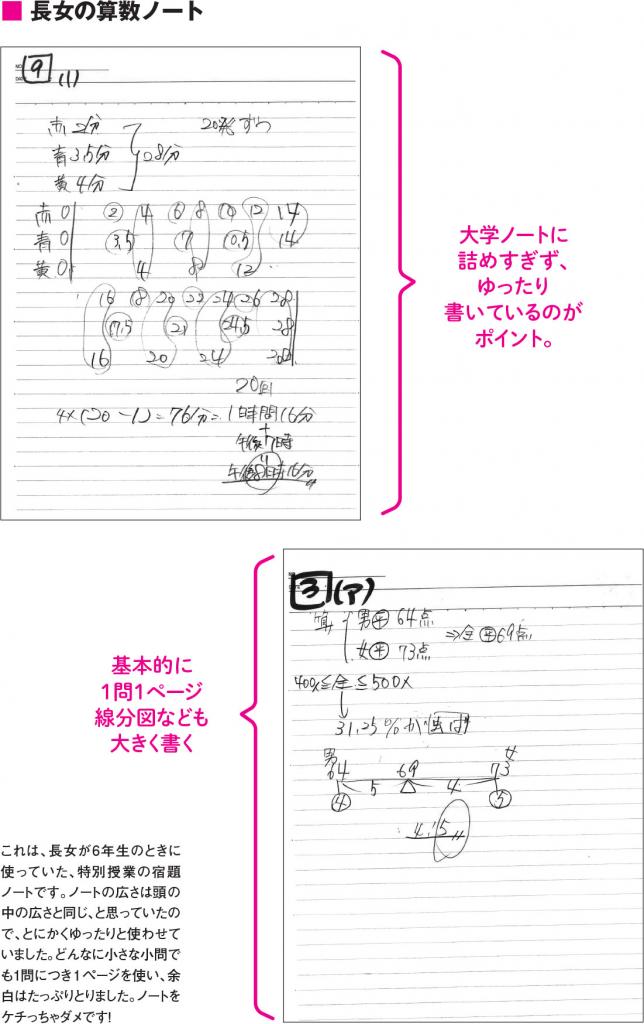 ■ 長女の算数ノート
9 (1)
赤 2分 20発ずつ
青 3.5分 28分
黄 4分
赤 0 2 4 6 8 10 12 14
青 0 3.5 7 10.5 14
黄 0 4 8 12
16 18 20 22 24 26 28
17.5 21 24.5 28
16 20 24 28
20回
4×(20-1)=76分=1時間16分
+
午後7時
午後8時16分
大学ノートに
詰めすぎず、
ゆったり
書いているのが
ポイント。
3 (ア)
算 男平 64点
女平 73点 ⇒全平69点
400人≦全≦500人
↓
31.25%が
男 女
64 69 73
5 △ 4
④ ⑤
4:5
基本的に
1問1ページ
線分図なども
大きく書く
これは、長女が6年生のときに
使っていた、特別授業の宿題
ノートです。ノートの広さは頭の
中の広さと同じ、と思っていたの
で、とにかくゆったりと使わせて
いました。どんなに小さな小問で
も1問につき1ページを使い、余
白はたっぷりとりました。ノートを
ケチっちゃダメです!